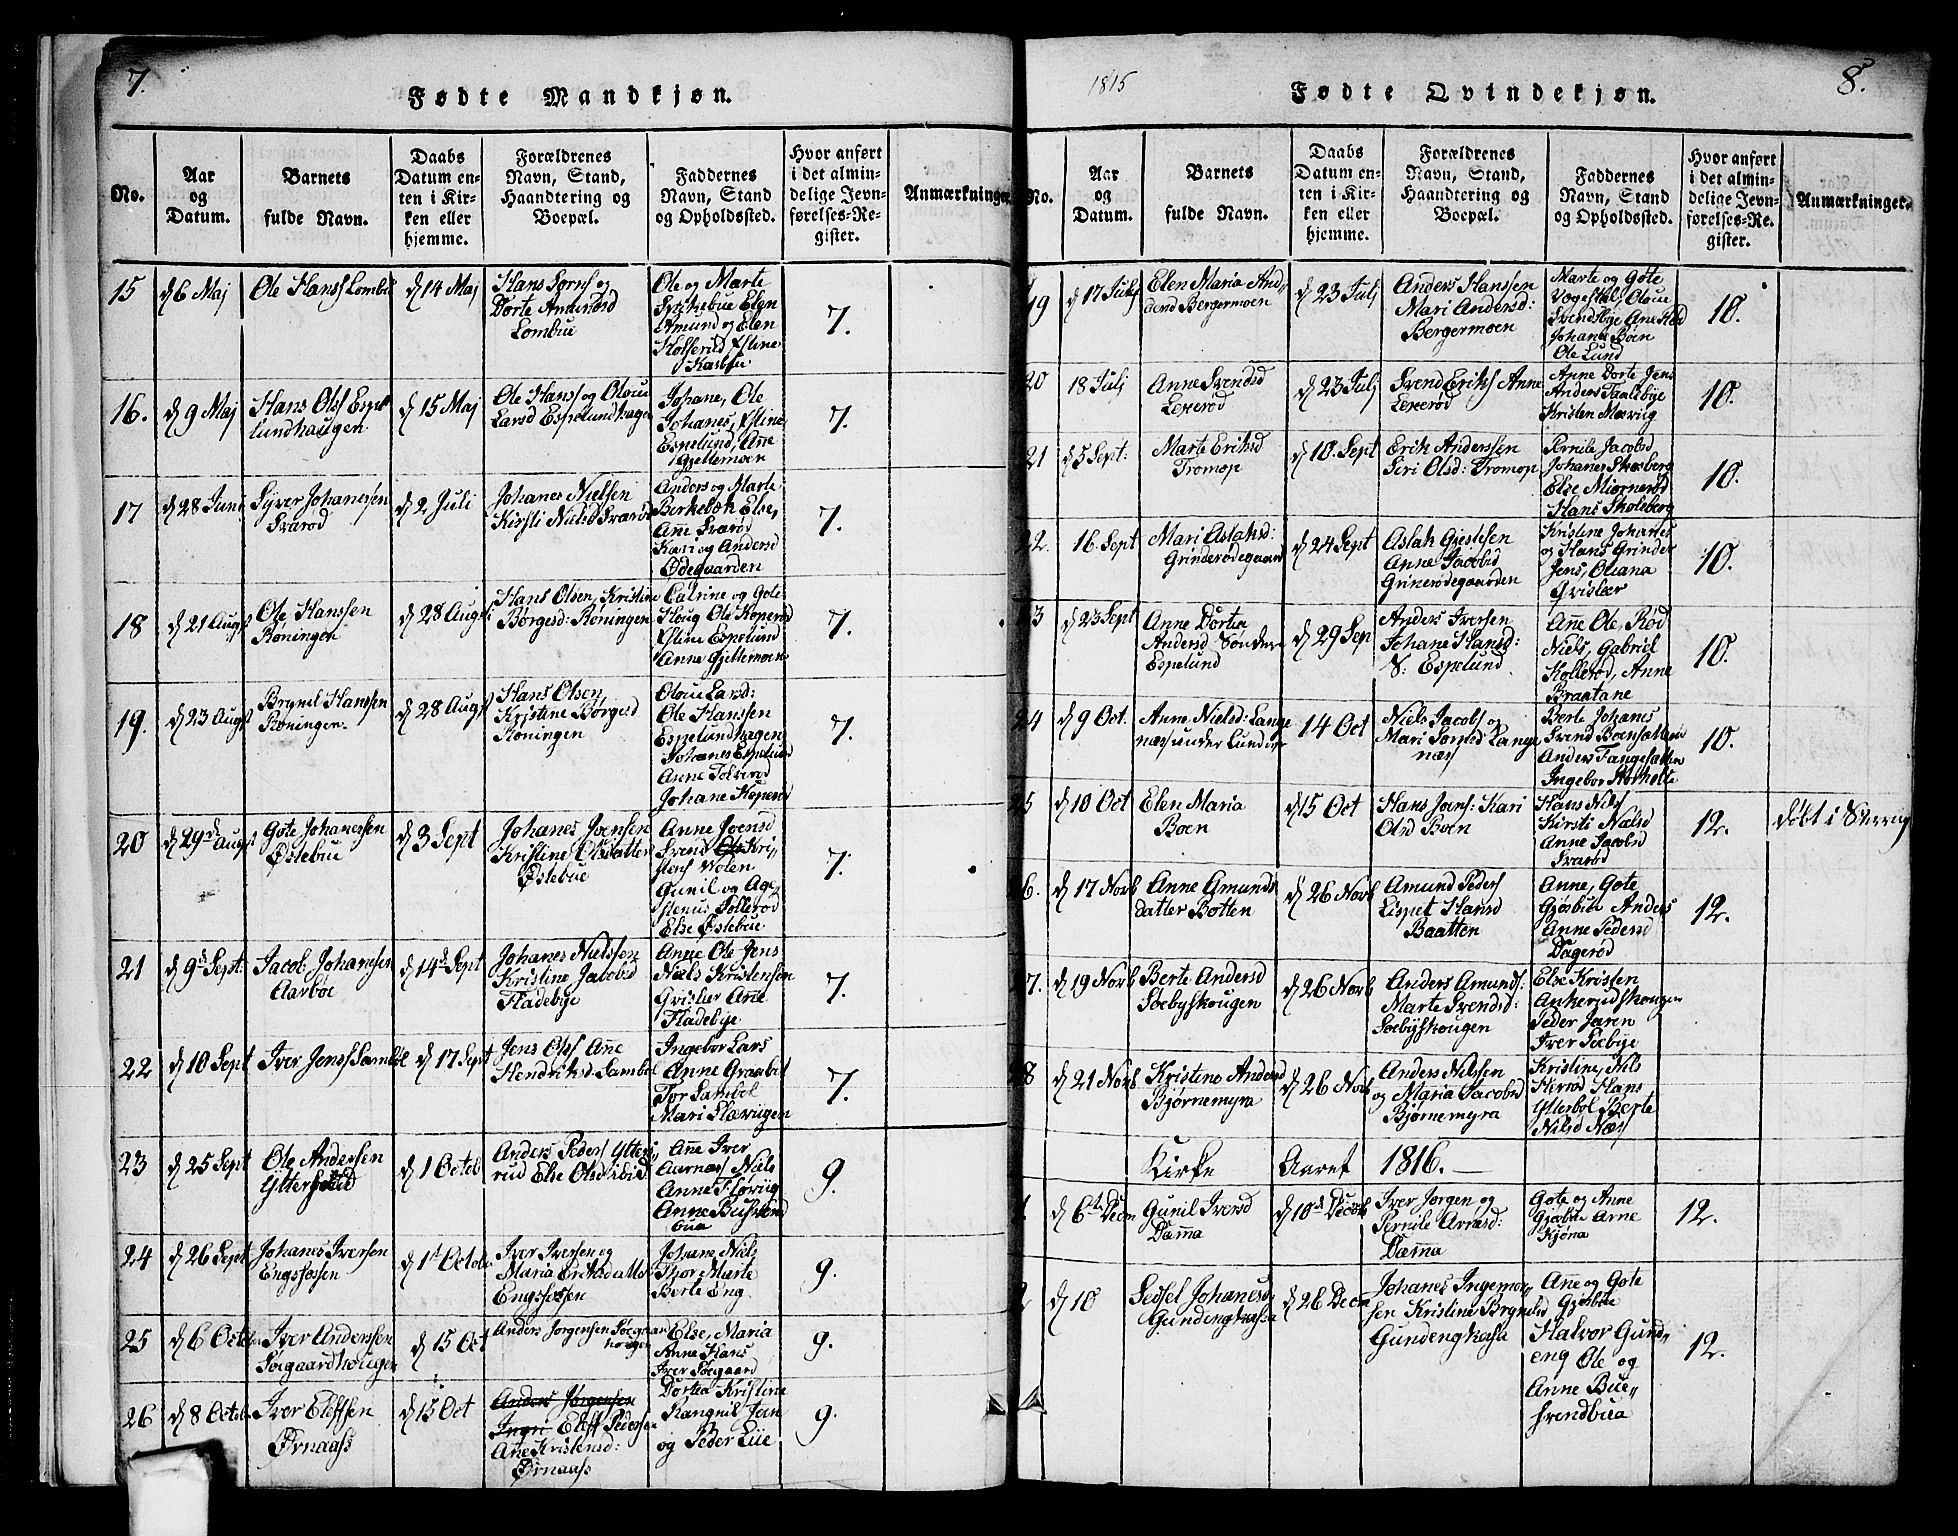 7.
Fødte Mandkjøn.
No.
Aar
og
Datum.
Barnets
fulde Navn.
Daabs
Datum en-
ten i Kir-
ken eller
hjemme.
Forældrenes
Navn, Stand,
Haandtering og
Boepæl.
Faddernes
Navn, Stand
og Opholdssted.
Hvor anført
i det almin-
delige Jevn-
førelses-Re-
gister.
Anmærkninger
15
d 6 Maj
Ole Hanss Lombu
d 14 Maj
Hans Sørns og
Dorte Amundsd
Lombue
Ole og Marte
Elen
Amund og Elen
Holserud Estine
7.
16.
d 9 Maj
Hans Olss Espe
lundhaugen
d 15 Maj
Ole Hanss og Oloue
Larsd Espelundhagen
Johane, Ole
Johanes, Estine
Espelund, Ane
Gjettemoen
7.
17
d 28 Juni
Syver Johanessen
Svarød
d 2 Juli
Johanes Nielsen
Kirsti Nielsd Svarød
Anders og Marte
Birkebæk Else,
Ane Svarød
Kari og Andersd
Ødegaarden
7.
18
d 21 Augst
Ole Hanssen
Roningen
d 28 Augst
Hans Olsen, Kristine
Børgesd: Røningen
Catrine og Gote
Houg Ole Koperød
Estine Espelund
Anne Gjettemoen
7.
19.
d 23 Augst
Brynil Hanssen
Roningen.
d 28 Augst
Hans Olsen
Kristine Børgesd
Roningen
Oloue Larsd:
Ole Hanssen
Espelundhagen
Johanes Espelund
Anne Tolverød
Johane Koperød
7.
20
d 29de Augst
Gote Johanessen
Østebue
d 3 Sept
Johanes Joensen
Kristine Olsdatter
Østebue
Anne Joensd
Svend Kri,,
stens Volen
Gunil og Age,
Sollerød
Else Østebue
7.
21
d 9d Sept.
Jacob Johansen
Aarboe
d 14d Sept
Johanes Nielssen
Kristine Jacobsd
Fladebye
Anne Ole Jens
Niels Kristensen
Grislier Anne
Fladebye
7.
22
d 10 Sept
Iver Jenss Sambøl
d 17 Sept
Jens Olss Anne
Hendriksd Sambøl
Ingebor Lars
Anne Graabøl
Tor Sambøl
Mari Slævigen
7.
23
d 25 Sept
Ole Andersen
d 1 Octob
Anders Peders Ytter,,
rud Else Olsd ibid
Anne Iver
Aarnæss Niels
Anne
Anne
bua
9.
24
d 26 Sept
Johanes Iversen
Engsfossen
d 1d Octob
Iver Iversen og
Maria Eriksdatter
Engsfossen
Johane, Niels
Thor Marte
Berte Eng
9.
25
d 6 Octob
Iver Anderssen
Søegaardhougen
d 15 Oct
Anders Jørgensen Søegaard
hougen
Else, Maria
Anne Hans
Iver Søegaard
9.
26
d 8 Octob
Iver Eleffsen
Ørnaass
d 15 Oct
Anders Jørgensen
Ingri Eleff Pedersen
Ane Kristensd:
Ørnaass
Dortea Kristine
Rangnil Joen
og Peder Lüe
9.
1815
Fødte Qvindekjøn.
8.
No.
Aar
og
Datum.
Barnets
fulde Navn.
Daabs
Datum en-
ten i Kir-
ken eller
hjemme.
Forældrenes
Navn, Stand,
Haandtering og
Boepæl.
Faddernes
Navn, Stand
og Opholdssted.
Hvor anført
i det almin-
delige Jevn-
førelses-Re-
gister.
Anmærkninger.
19
d 17 Julj
Elen Maria An,,
dersd Bergermoen
d 23 Julj
Anders Hanssen
Mari Andersd:
Bergermoen
Marte og Gote
Oloue
Svendsbye Ane
Johana Boen
Ole Lund
10.
20
18 Julj
Anne Svendsd
Lexerød
d 23 Julj
Svend Eriks Anne
Lexerød
Anne Dorte Jens
Anders Taalebye
Kristen Mærvig
10.
21
d 5 Sept:
Marte Eriksd
Tromop
d 10. Sept
Erik Anderssen
Siri Olsd: Tromop
Pernile Jacobsd
Johanes Skoleberg
Else Miørnerød
Hans Skoleberg
10.
22.
16. Sept
Mari Aslaksd:
Grinderødegaard
d 24 Sept
Aslak Gjestesen
Anne Jacobsd
Grinerødegaarden
Kristine Johanes
og Hans Grinder
Jens, Oliana
Grislær
10.
23
d 23 Sept
Anne Dortea
Andersd Sønder
Espelund
d 29 Sep
Anders Iversen
Johane Hansd:
S: Espelund
Anne Ole, Rød
Niels, Gabriel
Kollerød, Anne
Braatane
10.
24
d 9 Oct.
Anne Nielsd: Lange
næs under Lunder
14 Oct
Niels Jacobs og
Mari Langen
næs
Berte Johanes
Svend
Anders Tangesætter
Ingebor
10.
25
d 10 Oct
Elen Maria
Boen
d 15 Oct
Hans Joens: Kari
Olsd Boen
Hans Nils
Kirsti Nielsd
Anne Jacobsd
Svarød
12.
døbt i Sverrig
26.
d 17 Novb
Anne Amunds
datter Botten
d 26 Novb
Amund Peders
Lispet Hansd
Baatten
Anne, Gote
Gjøsbue Anders
Anne Pedersd
Dagerød
12.
27.
d 19 Novb
Berte Andersd
Soebyskougen
d 26 Novb
Anders Amunds:
Marte Svendsd:
Soebyskougen
Else Kristen
Ankerudskougen
Peder Jaren
Iver Soebye
28
d 21 Novb
Kristine Andersd
Bjørnemyra
d 26 Novb
Anders Nilssen
og Maria Jacobsd
Bjørnemyra
Kristine, Nils
Hans
Ytterbøl Berte
Nilsd Næs
Kirke Aaret 1816.
1.
d 6te Decm
Gunil Iversd
Damma
d 10de Decemb
Iver Jørgen og
Pernile Arnesd:
Damma
Gote og Anne
Gjøsbue Arne
Kjøna
12.
2
d 10
Sedsel Johanesd
Gundengkasa
d 26 Decm
Johanes Ingemor,,
sen Kristine Brynelsd
Gundengkasa
Anne og Gote
Gjøsbue
Halvor Gund,,
eng Ole og
Anne Bue,,
Svendbua
12.